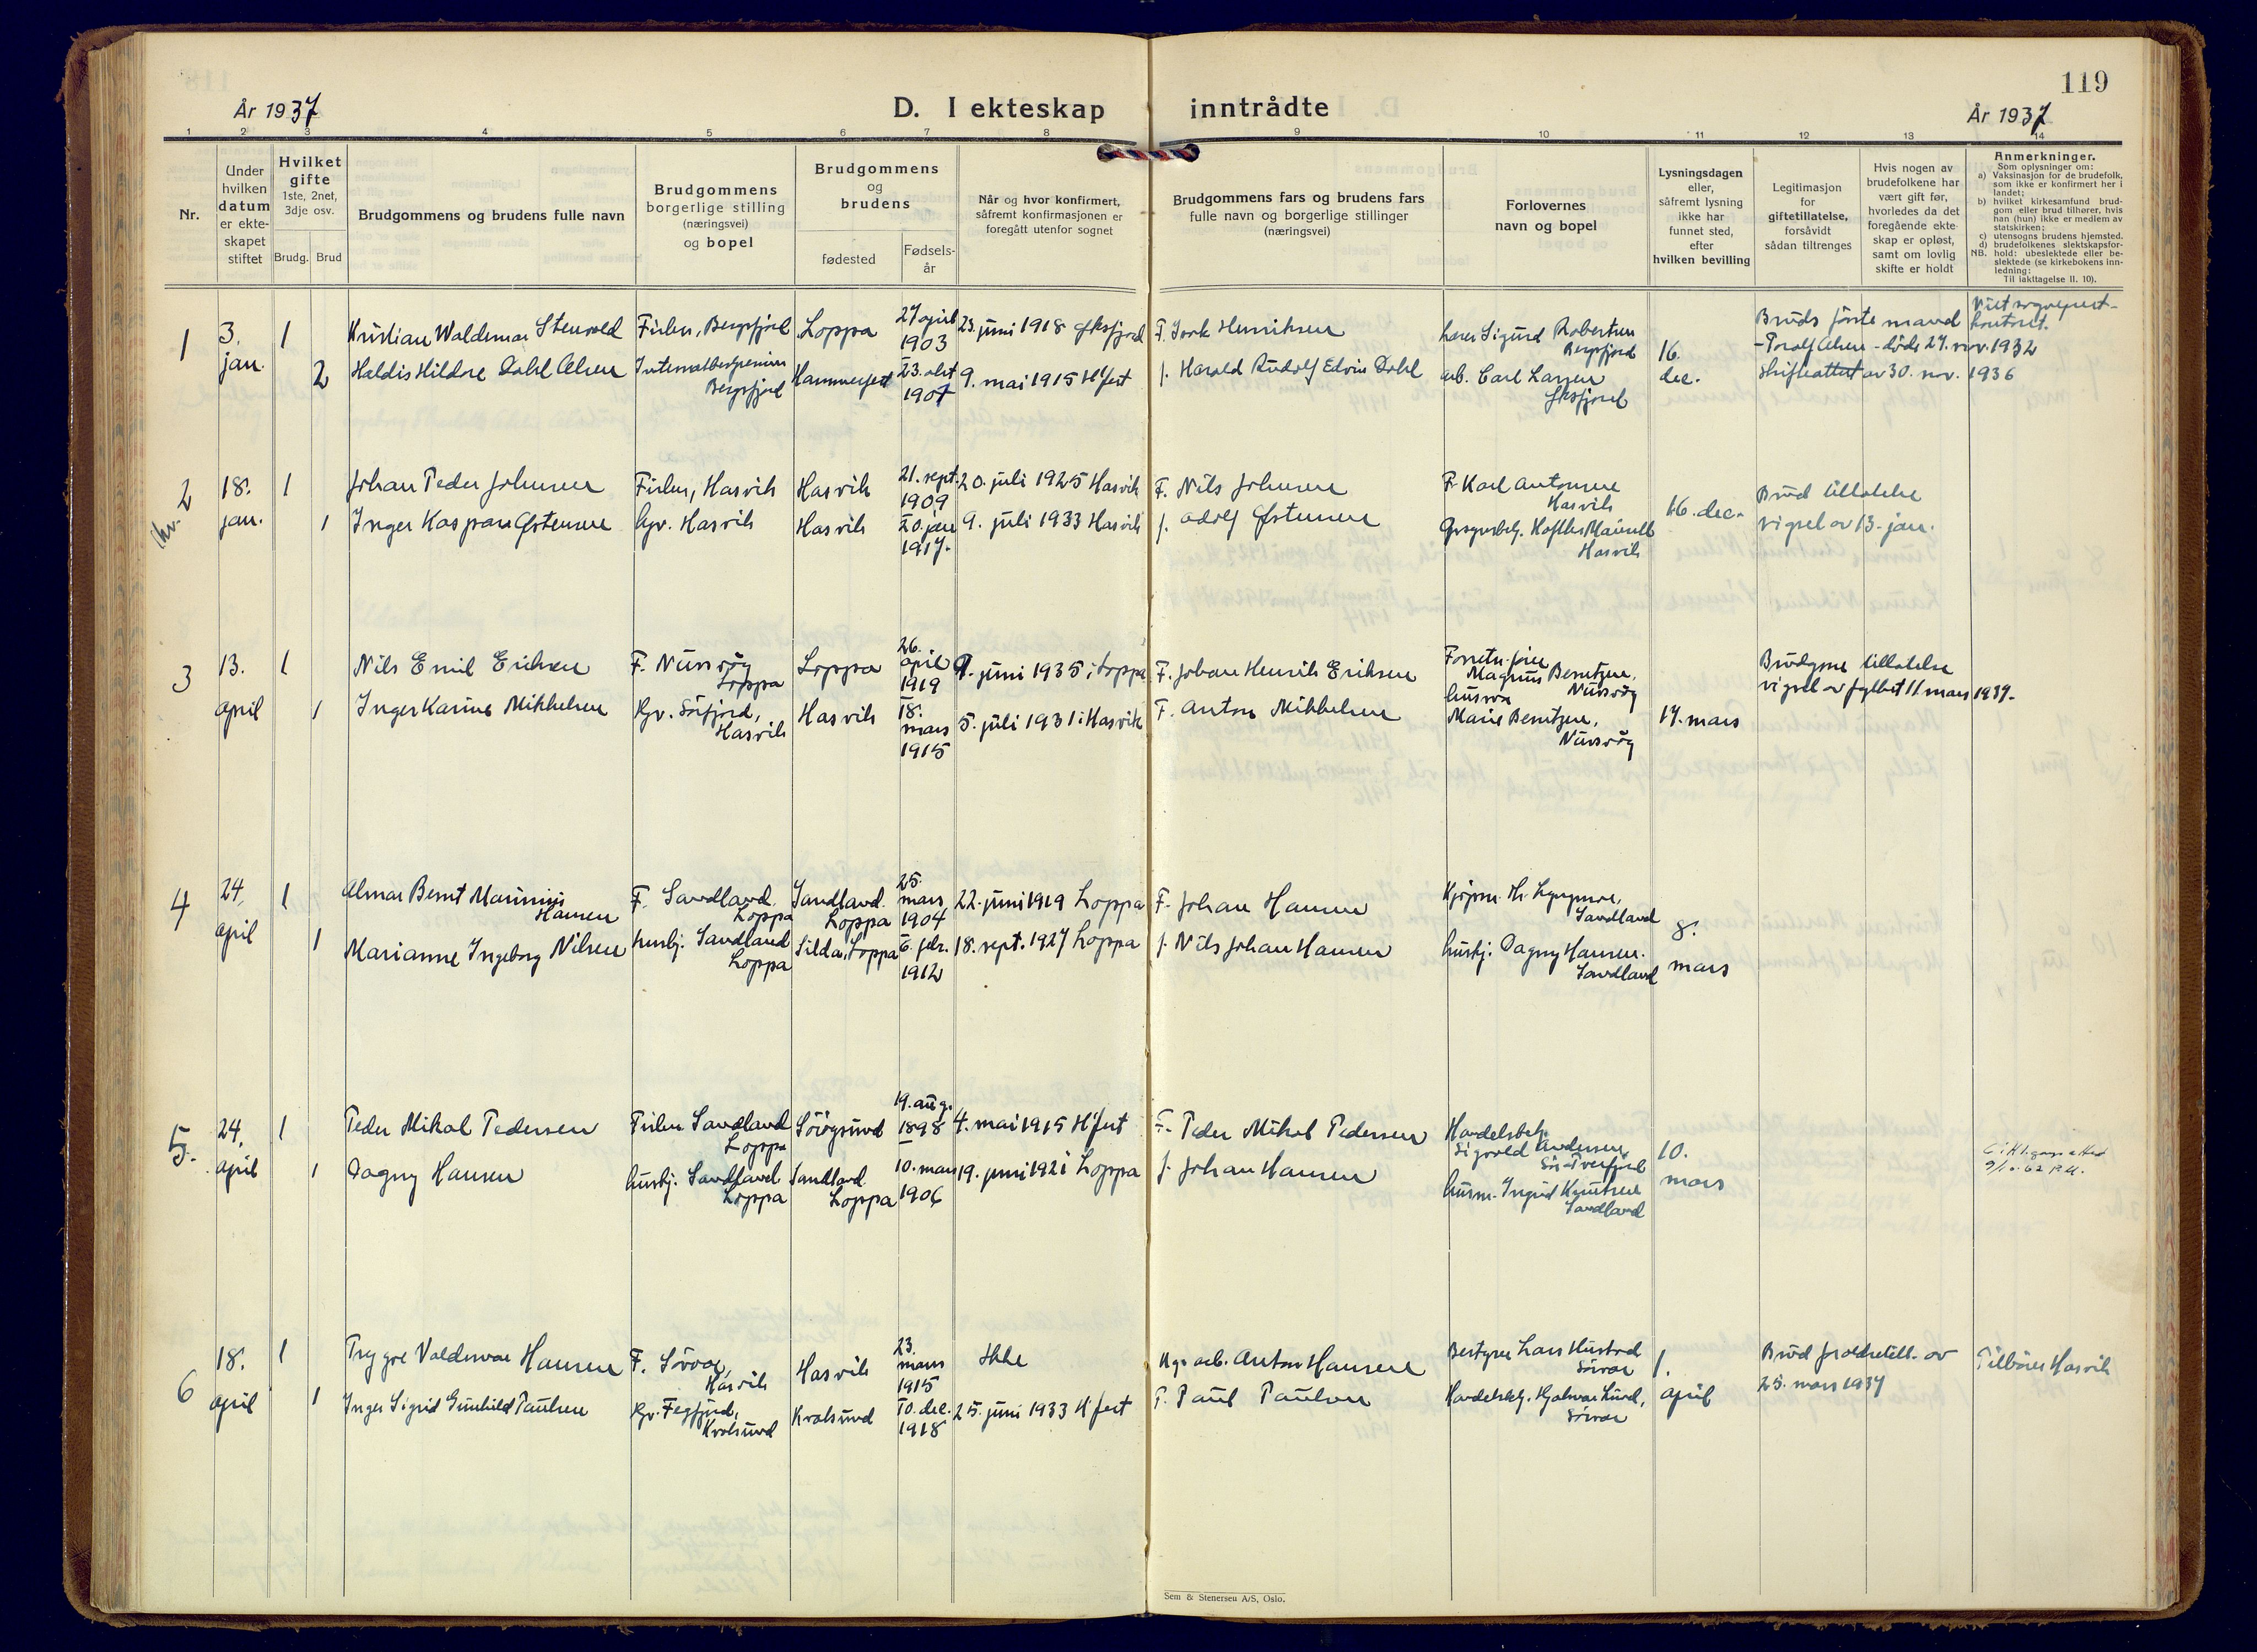 119
År 1937
D. I ekteskap inntrådte
År 1937
1 2 3 4 5 6 7 8 9 10 11 12 13 14
Nr.
Under
hvilken
datum
er ekte-
skapet
stiftet
Hvilket
gifte
1ste, 2net,
3dje osv.
Brudg. Brud
Brudgommens og brudens fulle navn
Brudgommens
borgerlige stilling
(næringsvei)
og bopel
Brudgommens
og
brudens
fødested
Fødsels-
år
Når og hvor konfirmert,
såfremt konfirmasjonen er
foregått utenfor sognet
Brudgommens fars og brudens fars
fulle navn og borgerlige stillinger
(næringsvei)
Forlovernes
navn og bopel
Lysningsdagen
eller,
såfremt lysning
ikke har
funnet sted,
efter
hvilken bevilling
Legitimasjon
for
giftetillatelse,
forsåvidt
sådan tiltrenges
Hvis nogen av
brudefolkene har
vært gift før,
hvorledes da det
foregående ekte-
skap er opløst,
samt om lovlig
skifte er holdt
Anmerkninger.
Som oplysninger om:
a) Vaksinasjon for de brudefolk,
som ikke er konfirmert her i
landet;
b) hvilket kirkesamfund brud-
gom eller brud tilhører, hvis
han (hun) ikke er medlem av
statskirken;
c) utensogns brudens hjemsted.
d) brudefolkenes slektskapsfor-
hold: ubeslektede eller be-
slektede (se kirkebokens inn-
ledning:
NB.
Til iakttagelse II. 10).
1
3.
jan.
1
2
Kristian Waldemar Stenvold
Haldis Hildre Dahl Olsen
Fisker, Bergsfjord
Bergsfjord
Loppa
Hammerfest
27 april
1903
23. okt
1901
23. juni 1918 Øksfjord
9. mai 1915 H'fest
F. Henriksen
f. Harald Rudolf Edvin Dahl
Lærer Sigurd Robertsen
Bergsfjord
arb. Carl Larsen
Øksfjord
16.
dec.
Bruds første mand
- Toralf Olsen - døde 27. nov. 1932
Skifteattest av 30. nov. 1936
2
18.
jan.
1
1
Johan Peder Johnsen
Inger Kaspara Østensen
Fisker, Hasvik
Gpv. Hasvik
Hasvik
Hasvik
21. sept.
1909
20. jan
1917.
20. juli 1925 Hasvik
9. juli 1933 Hasvik
F. Nils Johnsen
f. Adolf Østensen
F. Karl Antonsen
Hasvik
Hasvik
16. dec.
Brud tillatelse
vigsel av 13. jan.
3
13.
april
1
1
Nils Emil Eriksen
Inger Karine Mikkelsen
F. Nuvsvåg
Loppa
Gpv. Sørfjord,
Hasvik
Loppa
Hasvik
26.
april
1919
18.
mars
1915
9. juni 1935 i Loppa
5. juli 1931 i Hasvik
F. Johan Henrik Eriksen
F. Anton Mikkelsen
Magnus Berntzen,
Nuvsvåg
husmor
Marie Berntzen,
Nuvsvåg
17. mars
Brudgom tillatelse
vigsel av fylket 11. mars 1937.
4
24.
april
1
1
Almar Bernt Marinius
Hansen
Marianne Ingeborg Nilsen
F. Sandland.
Loppa
hushj. Sandland
Loppa
Sandland.
Loppa
Silda, Loppa
25.
mars
1904
6. febr.
1912
22. juni 1919 Loppa
18. sept. 1927 Loppa
F. Johan Hansen
f. Nils Johan Hansen
Sandland
hushj. Dagny Hansen.
Sandland
8.
mars
5.
24.
april
1
1
Peder Mikal Pedersen
Dagny Hansen
Fisker Sandland
Loppa
hushj. Sandland
Loppa
Sørøysund
Sandland.
Loppa
19. aug.
1898
10. mars
1906
4. mai 1915 H'fest
19. juni 1921 Loppa
F. Peder Mikal Pedersen
f. Johan Hansen
Handelsbetj.
Sigvald Andersen,
Sør-Tverfjord
husm. Ingrid Knutsen
Sandland
10.
mars
6
18.
april
1
1
Trygve Valdemar Hansen
Inger Sigrid Gunhild Paulsen
F. Sørvær,
Hasvik
Gpv. Fegfjord,
Kvalsund
Hasvik
Kvalsund
23.
mars
1915
10. dec.
1918
Ikke
25. juni 1933 H'fest
arb. Anton Hansen
F. Paul Paulsen
Bestyrer Lars Hustad
Sørvær
Handelsbetj. Hjalmar Lund,
Sørvær
1.
april
Brud foreldretill. av
25. mars 1937
Tilhører Hasvik
Sem & Stenersen A/S, Oslo.